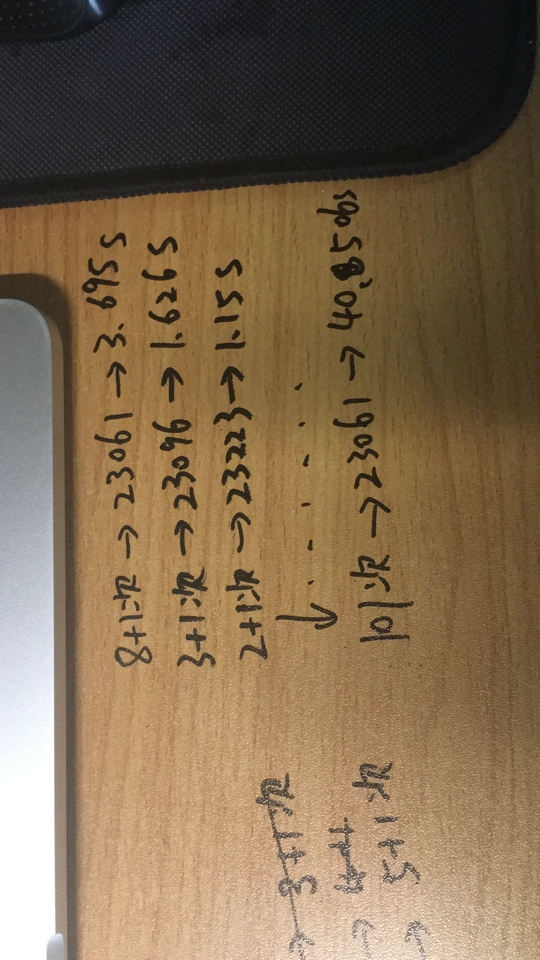 8+1次 → 23061 → 3.695s
3+1次 → 23096 → 1.626s
2+1次 → 23223 → 1.15s
101次 → 23061 → 40.8509s
3+1次
5+1次